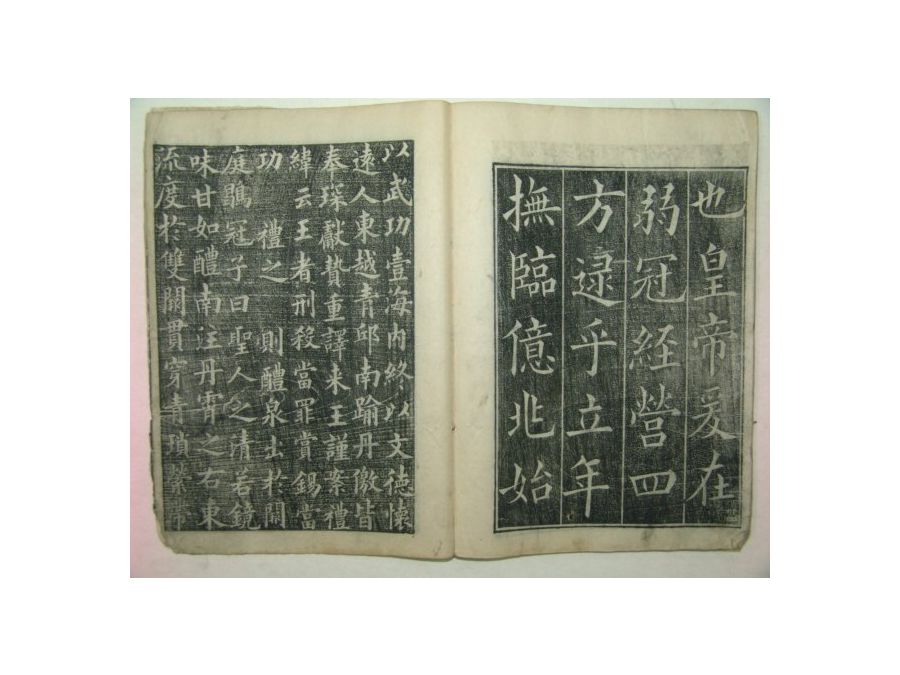 也皇帝爰在
弱冠經營四
方逮乎立年
撫臨億兆始
以武功壹海内終以文德懷
遠人東越青邱南踰丹儌皆
奉琛獻贄重譯来王謹案禮
緯云王者刑殺當罪賞錫當
功 禮之 則醴泉出於闕
庭鶡冠子曰聖人之清若鏡
味甘如醴南注丹霄之右東
流度於雙闕貫穿青瑣縈帶